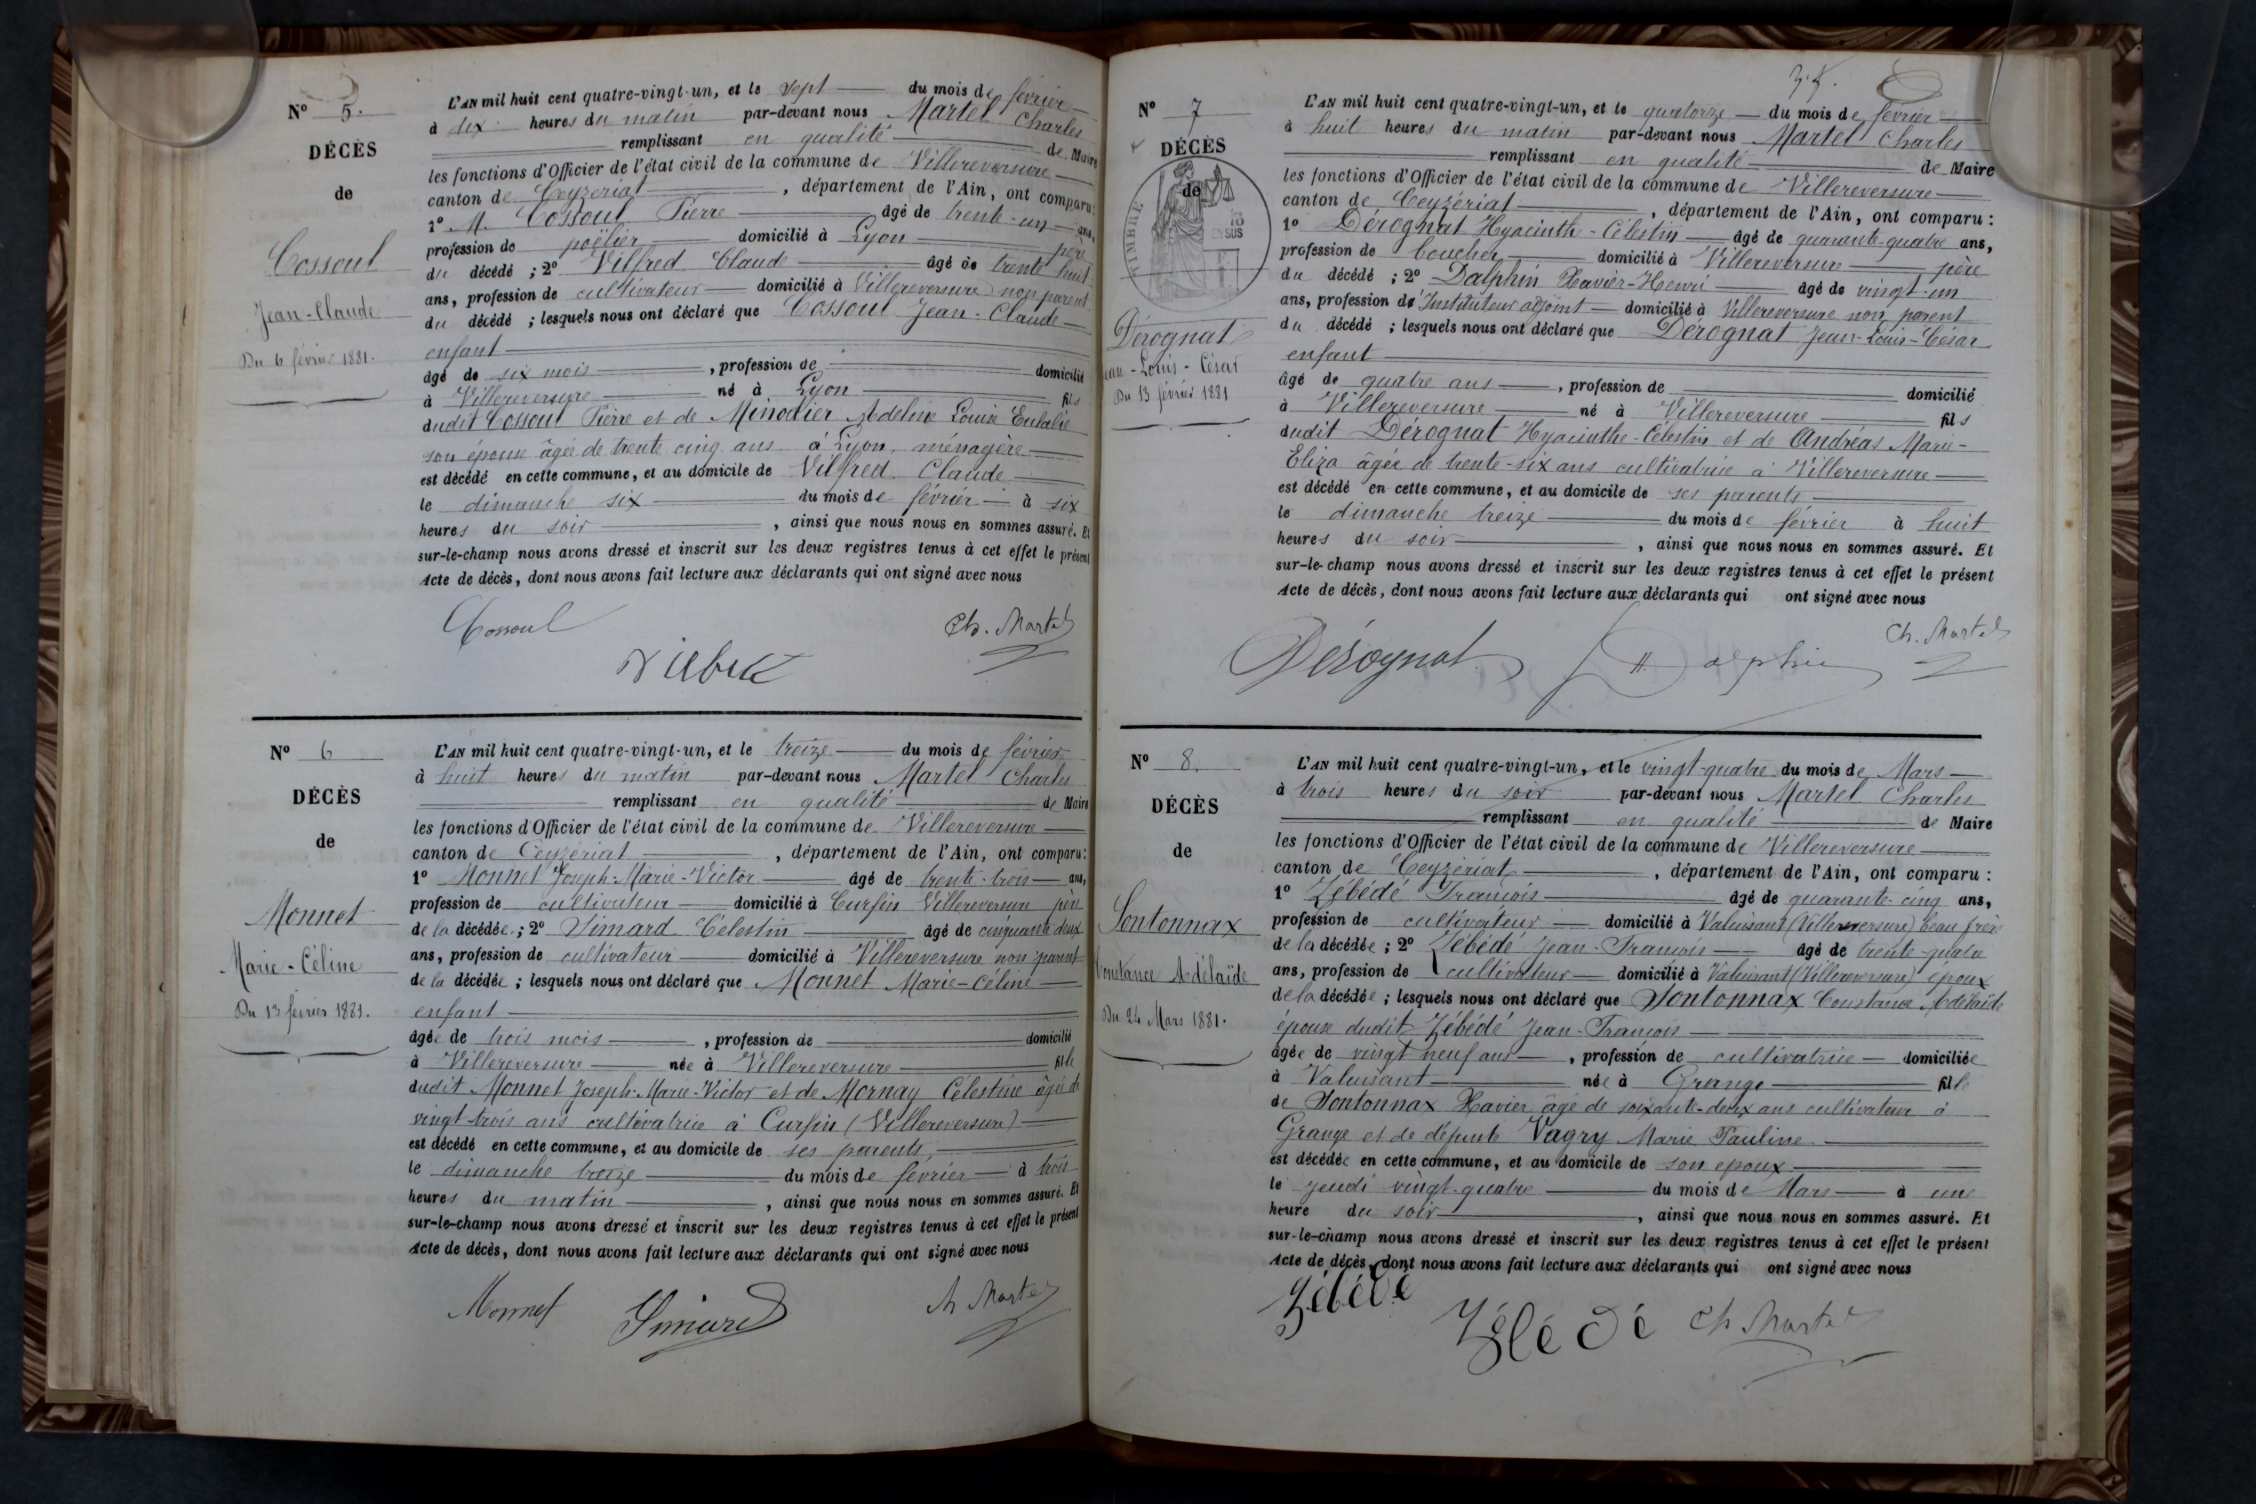 N° 5.
DÉCÈS
de
Cossoul
Jean-Claude
Du 6 février 1881.
L'AN mil huit cent quatre-vingt-un, et le sept du mois de février
à dix heures du matin par-devant nous Martel Charles
remplissant en qualité de Maire
les fonctions d'Officier de l'état civil de la commune de Villereversure
canton de Ceyzériat, département de l'Ain, ont comparu:
1° M. Cossoul Pierre âgé de trente-un ans,
profession de poëlier domicilié à Lyon père
du décédé; 2° Vilfred Claude âgé de trente huit
ans, profession de cultivateur domicilié à Villereversure non parent
du décédé; lesquels nous ont déclaré que Cossoul Jean-Claude
enfant
âgé de six mois, profession de domicilié
à Villereversure né à Lyon fils
dudit Cossoul Pierre et de Minodier Adeline Louise Eulalie
son épouse âgée de trente cinq ans à Lyon, ménagère
est décédé en cette commune, et au domicile de Vilfred Claude
le dimanche six du mois de février à six
heures du soir, ainsi que nous nous en sommes assuré. Et
sur-le-champ nous avons dressé et inscrit sur les deux registres tenus à cet effet le présent
Acte de décès, dont nous avons fait lecture aux déclarants qui ont signé avec nous
Cossoul
Ch. Martel
N° 6
DÉCÈS
de
Monnet
Marie-Céline
Du 13 février 1881.
L'AN mil huit cent quatre-vingt-un, et le treize du mois de février
à huit heures du matin par-devant nous Martel Charles
remplissant en qualité de Maire
les fonctions d'Officier de l'état civil de la commune de Villereversure
canton de Ceyzériat, département de l'Ain, ont comparu:
1° Monnet Joseph-Marie-Victor âgé de trente-trois ans,
profession de cultivateur domicilié à Curfin Villereversure père
de la décédée; 2° Simard Célestin âgé de cinquante deux
ans, profession de cultivateur domicilié à Villereversure non parent
de la décédée; lesquels nous ont déclaré que Monnet Marie-Céline
enfant
âgée de trois mois, profession de domicilié
à Villereversure née à Villereversure fille
dudit Monnet Joseph-Marie-Victor et de Mornay Célestine âgée de
vingt-trois ans cultivatrice à Curfin (Villereversure)
est décédé en cette commune, et au domicile de ses parents,
le dimanche treize du mois de février à trois
heures du matin, ainsi que nous nous en sommes assuré. Et
sur-le-champ nous avons dressé et inscrit sur les deux registres tenus à cet effet le présent
Acte de décès, dont nous avons fait lecture aux déclarants qui ont signé avec nous
Monnet Simard Ch Martel
N° 7
DÉCÈS
de
TIMBRE
EN SUS
Dérognat
Jean-Louis-César
Du 13 février 1881
L'AN mil huit cent quatre-vingt-un, et le quatorze du mois de février
à huit heures du matin par-devant nous Martel Charles
remplissant en qualité de Maire
les fonctions d'Officier de l'état civil de la commune de Villereversure
canton de Ceyzériat, département de l'Ain, ont comparu:
1° Dérognat Hyacinthe-Célestin âgé de quarante-quatre ans,
profession de boucher domicilié à Villereversure père
du décédé; 2° Dalphin Xavier-Henri âgé de vingt-un
ans, profession d'Instituteur adjoint domicilié à Villereversure non parent
du décédé; lesquels nous ont déclaré que Dérognat Jean-Louis-César
enfant
âgé de quatre ans, profession de domicilié
à Villereversure né à Villereversure fils
dudit Dérognat Hyacinthe-Célestin et de Andréas Marie-
Eliza âgée de trente-six ans cultivatrice à Villereversure
est décédé en cette commune, et au domicile de ses parents
le dimanche treize du mois de février à huit
heures du soir, ainsi que nous nous en sommes assuré. Et
sur-le-champ nous avons dressé et inscrit sur les deux registres tenus à cet effet le présent
Acte de décès, dont nous avons fait lecture aux déclarants qui ont signé avec nous
Dérognat H Dalphin Ch. Martel
N° 8.
DÉCÈS
de
Sontonnax
Constance Adélaïde
Du 24 Mars 1881.
L'AN mil huit cent quatre-vingt-un, et le vingt-quatre du mois de Mars
à trois heures du soir par-devant nous Martel Charles
remplissant en qualité de Maire
les fonctions d'Officier de l'état civil de la commune de Villereversure
canton de Ceyzériat, département de l'Ain, ont comparu:
1° Zébédé François âgé de quarante-cinq ans,
profession de cultivateur domicilié à Valuisant (Villereversure) beau frère
de la décédée; 2° Zébédé Jean-François âgé de trente-quatre
ans, profession de cultivateur domicilié à Valuisant (Villereversure) époux
de la décédée; lesquels nous ont déclaré que Sontonnax Constance Adélaïde
épouse dudit Zébédé Jean-François
âgée de vingt neuf ans, profession de cultivatrice domiciliée
à Valuisant née à Grange fille
de Sontonnax Xavier âgé de soixante-deux ans cultivateur à
Grange et de défunte Vagry Marie Pauline
est décédée en cette commune, et au domicile de son époux
le jeudi vingt-quatre du mois de Mars à une
heure du soir, ainsi que nous nous en sommes assuré. Et
sur-le-champ nous avons dressé et inscrit sur les deux registres tenus à cet effet le présent
Acte de décès, dont nous avons fait lecture aux déclarants qui ont signé avec nous
Zébédé Zébédé Ch Martel